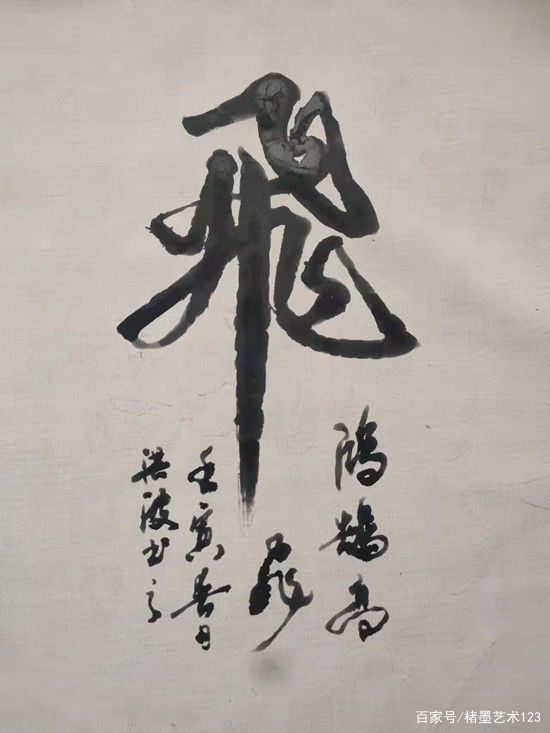 飛
鴻鵠高
飛
壬寅春日
梁波书
百家号/楮墨艺术123